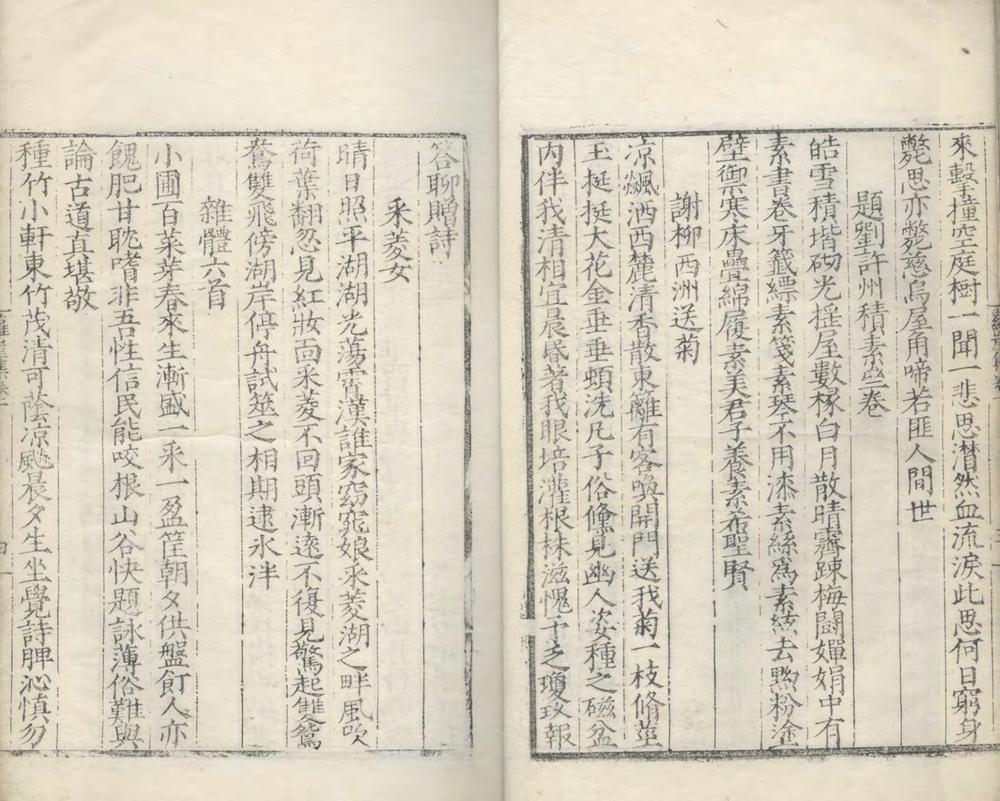 來擊撞空庭樹一聞一悲思潸然血流淚此思何日窮身
斃思亦斃慈烏屋角啼若匪人間世
題劉許州積素堂卷
皓雪積堦砌光搖屋數椽白月散晴霽踈梅鬪嬋娟中有
素書卷牙籤縹素箋素琴不用漆素絲寫素絃去煦粉塗
壁御寒床疊綿履素美君子養素希聖賢
謝柳西洲送菊
凉飈洒西麓清香散東籬有客喚開門送我菊一枝脩莖
玉挺挺大花金垂垂頓洗凡子俗儵見幽人姿種之磁盆
內伴我清相宜晨昏著我眼培灌根株滋愧予乏瓊玖報
答聊贈詩
采菱女
晴日照平湖湖光蕩霄漢誰家窈窕娘采菱湖之畔風吹
荷葉翻忽見紅妝面采菱不回頭漸遠不復見驚起雙鴛
鴦雙飛傍湖岸停舟試筮之相期逮氷泮
雜體六首
小圃百菜芽春來生漸盛一采一盈筐朝夕供盤飣人亦
餽肥甘耽嗜非吾性信民能咬根山谷快題詠薄俗難與
論古道直堪敬
種竹小軒東竹茂清可蔭凉颸晨夕生坐覺詩脾沁慎勿